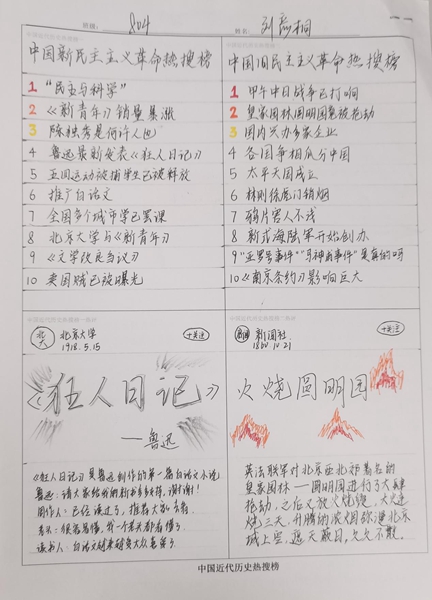 班级：804
姓名：刘彦桐
中国近代历史热搜榜
中国新民主主义革命热搜榜
1 “民主与科学”
2 《新青年》销量暴涨
3 陈独秀是何许人也
4 鲁迅最新发表《狂人日记》
5 五四运动被捕学生已被释放
6 推广白话文
7 全国多个城市学已罢课
8 北京大学与《新青年》
9 《文学改良刍议》
10 卖国贼已被曝光
中国旧民主主义革命热搜榜
1 甲午中日战争已打响
2 皇家园林圆明园竟被抢劫
3 国内兴办多家企业
4 各国争相瓜分中国
5 太平天国成立
6 林则徐虎门销烟
7 鸦片害人不浅
8 新式海陆军开始创办
9 “亚罗号事件”“马神甫事件”是真的吗
10 《南京条约》影响巨大
北大
北京大学
1918.5.15
+关注
《狂人日记》
——鲁迅
《狂人日记》是鲁迅创作的第一篇白话文小说
鲁迅：请大家给我的新书多支持，谢谢！
周作人：已经读过了，推荐大家去看
老头：很容易懂，我一个老头都看懂了
读书人：白话文越来越贴近大众
新闻社
1860.10.21
+关注
火烧圆明园
英法联军对北京西北郊著名的
皇家园林——圆明园进行了大肆
抢劫，之后又放火烧毁，大火连
烧三天，升腾的浓烟弥漫北京
城上空，遮天蔽日，久久不散。
中国近代历史热搜榜